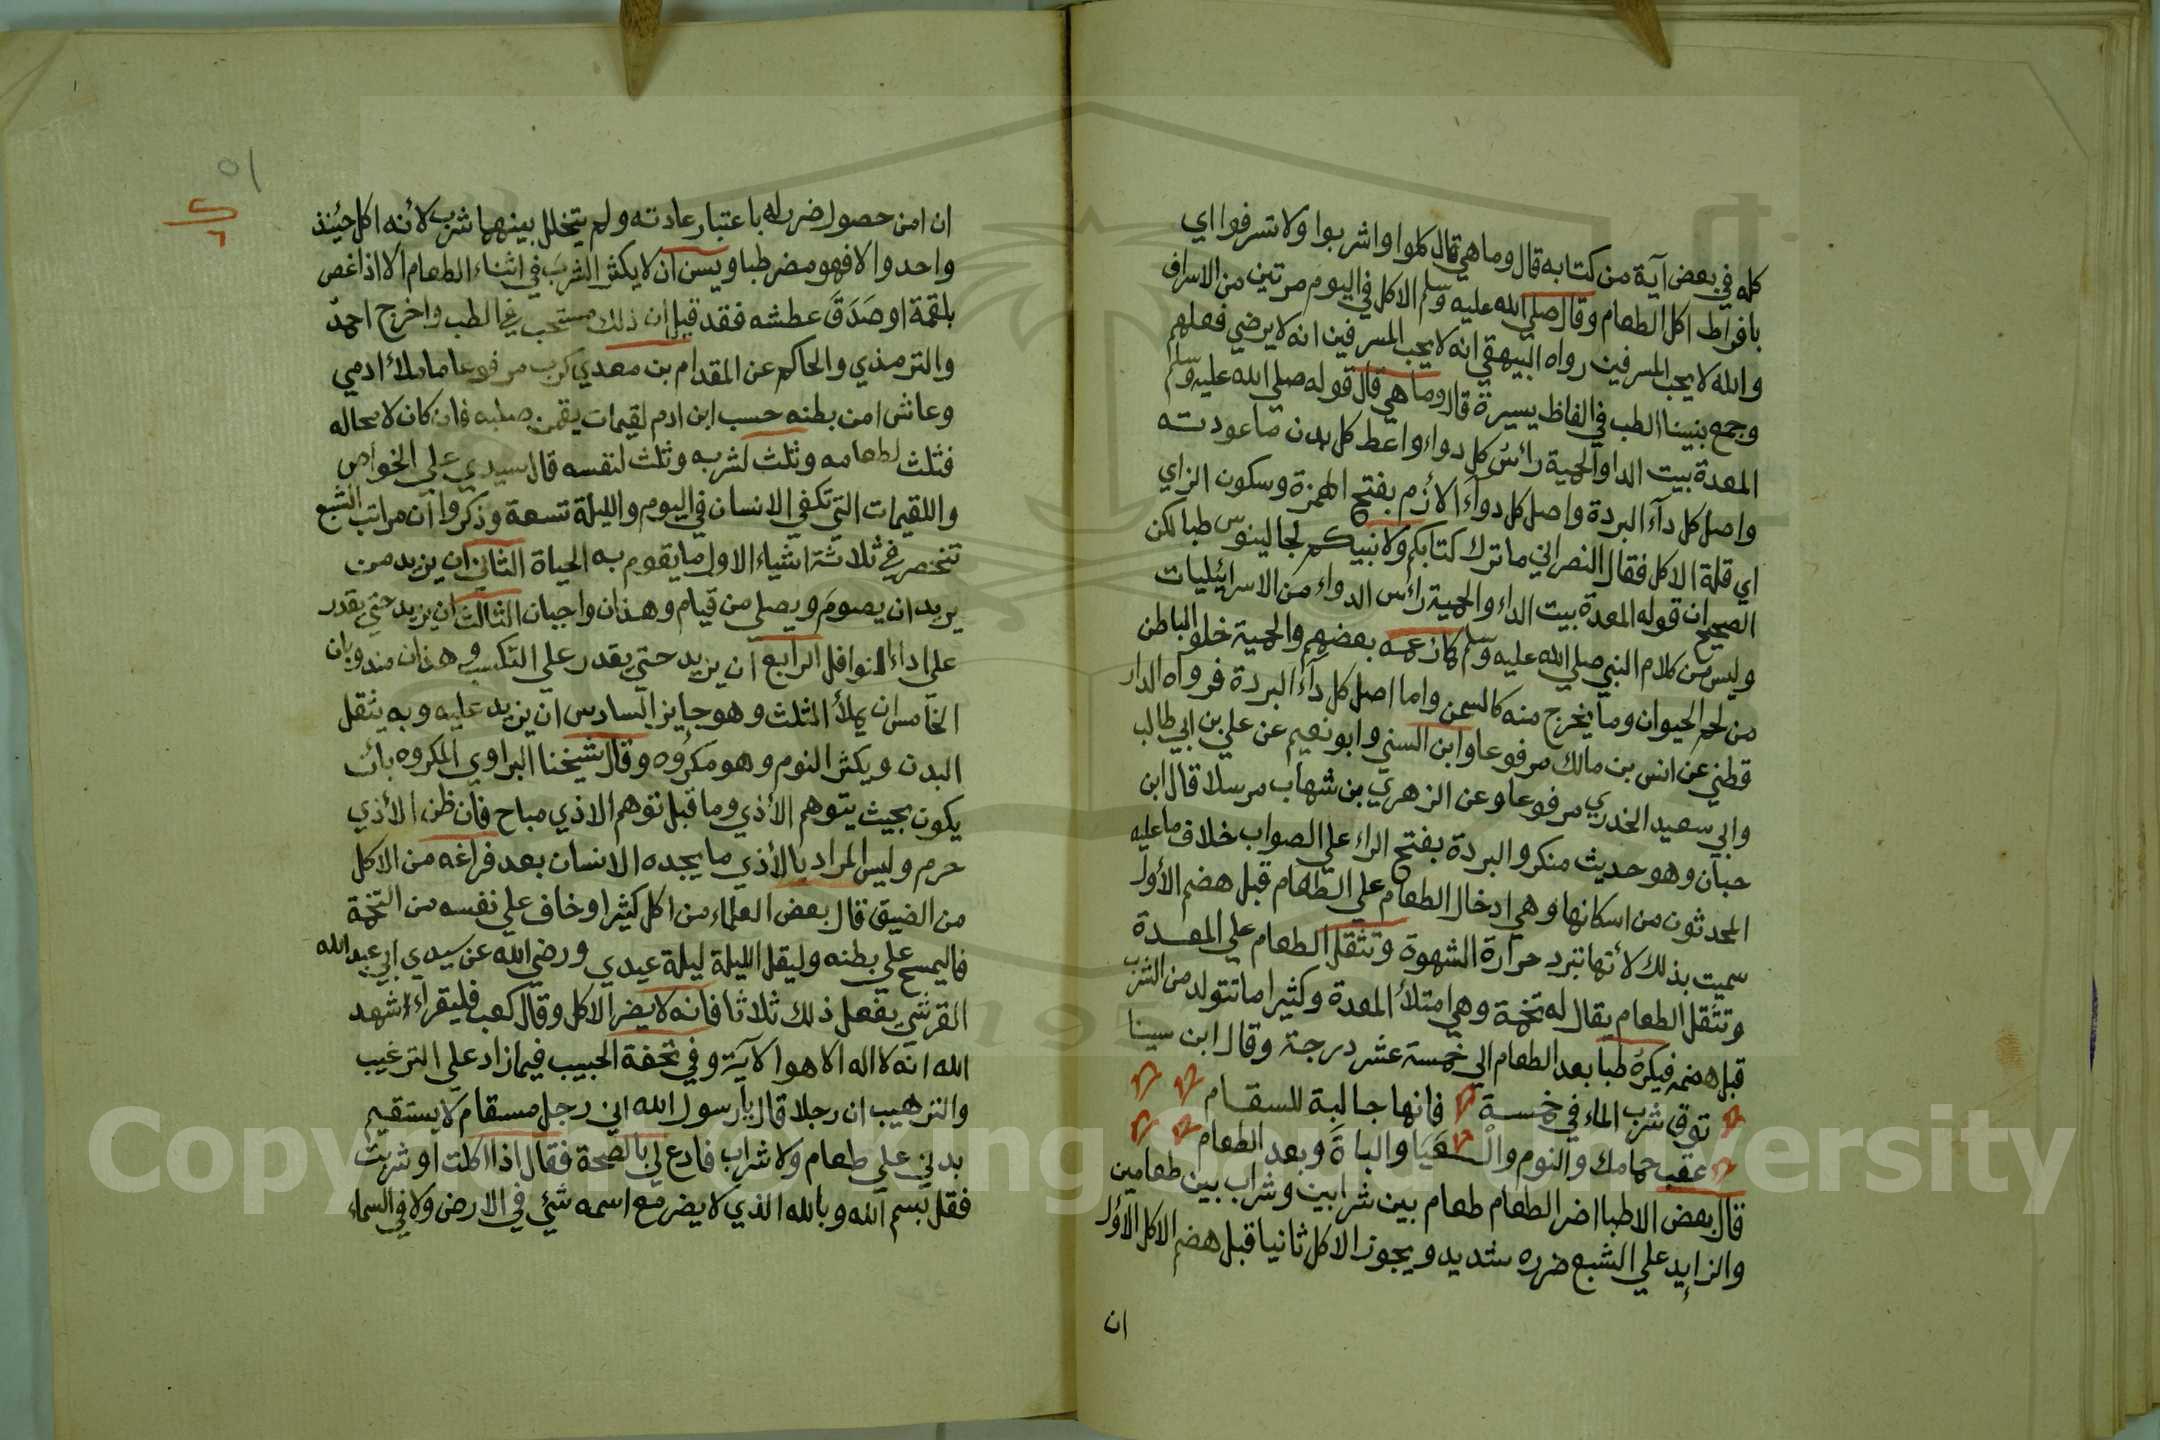 كله في بعض آية من كتابه قال وما هي قال كلوا واشربوا ولا تسرفوا اي
بافراط اكل الطعام وقال صلي الله عليه وسلم الاكل في اليوم مرتين من الاسراف
والله لا يحب المسرفين رواه البيهقي انه لا يحب المسرفين انه لا يرضي فعلهم
وجمع نبينا الطب في الفاظ يسيرة قال وما هي قال قوله صلي الله عليه وسلم
المعدة بيت الدا والحمية رأس كل دواء واعط كل بدن ما عودته
واصل كل دآء البردة واصل كل دوآء الأزم بفتح الهمزة وسكون الزاي
اي قلة الاكل فقال النصراني ما ترك كتابكم ولا نبيكم لجالينوس طبا لكن
الصحيح ان قوله المعدة بيت الداء والحمية رأس الدواء من الاسرائيليات
وليس من كلام النبي صلي الله عليه وسلم كما زعمه بعضهم والحمية خلو الباطن
من لحم الحيوان وما يخرج منه كالسمن واما اصل كل دآء البردة فرواه الدار
قطني عن انس بن مالك مرفوعا وابن السني وابو نعيم عن علي بن ابي طالب
وابي سعيد الخدري مرفوعا وعن الزهري بن شهاب مرسلا قال ابن
حبان وهو حديث منكر والبردة بفتح الراء علي الصواب خلاف ما عليه
المحدثون من اسكانها وهي ادخال الطعام علي الطعام قبل هضم الأول
سميت بذلك لأنها تبرد حرارة الشهوة وتثقل الطعام علي المعدة
وتثقل الطعام يقال له تخمة وهي امتلأ المعدة وكثيرا ما تتولد من الشرب
قبل هضمه فيكره طبا بعد الطعام الي خمسة عشر درجة وقال ابن سينا
توق شرب الماء في خمسة فانها جالبة للسقام
عقب حمامك والنوم والاعيا والباة وبعد الطعام
قال بعض الاطبا اضر الطعام طعام بين شرابين وشراب بين طعامين
والزايد علي الشبع ضرره شديد ويجوز الاكل ثانيا قبل هضم الاكل الأول
ان
٥١
ان امن حصول ضرر له باعتبار عادته ولم يتخلل بينهما شرب لأنه اكل حينئذ
واحد والا فهو مضر طبا ويسن ان لا يكثر الشرب في اثناء الطعام الا اذا غص
بلقمة او صَدَقَ عطشه فقد قيل ان ذلك مستحب في الطب واخرج احمد
والترمذي والحاكم عن المقدام بن معدي كرب مرفوعا ما ملأ ادمي
وعاش امن بطنه حسب ابن ادم لقيمات يقمن صلبه فان كان لا محاله
فثلث لطعامه وثلث لشربه وثلث لنفسه قال سيدي علي الخواص
واللقيمات التي تكفي الانسان في اليوم والليلة تسعة وذكروا ان مراتب الشبع
تنحصر في ثلاثة اشياء الاول ما يقوم به الحياة الثاني ان يزيد من
يريد ان يصوم ويصلي من قيام وهذان واجبان الثالث ان يزيد حتي يقدر
علي اداء النوافل الرابع ان يزيد حتي يقدر علي التكسب وهذان مندوبان
الخامس ان يملأ المثلث وهو جايز السادس ان يزيد عليه وبه يثقل
البدن ويكثر النوم وهو مكروه وقال شيخنا البراوي المكروه بان
يكون بحيث يتوهم الأذي وما قبل توهم الاذي مباح فان ظن الأذي
حرم وليس المراد بالأذي ما يجده الانسان بعد فراغه من الاكل
من الضيق قال بعض العلماء من اكل كثيرا وخاف علي نفسه من التخمة
فاليمسح علي بطنه وليقل الليلة ليلة عيدي ورضي الله عن سيدي ابي عبد الله
القرشي يفعل ذلك ثلاثا فانه لا يضر الاكل وقال كعب فليقرأ شهد
الله انه لا اله الا هو الآية وفي تحفة الحبيب فيما زاد علي الترغيب
والترهيب ان رجلا قال يا رسول الله اني رجل مسقام لا يستقيم
بدني علي طعام ولا شراب فادع لي بالصحة فقال اذا اكلت او شربت
فقل بسم الله وبالله الذي لا يضر مع اسمه شئي في الارض ولا في السماء
Copyright © King Saud University